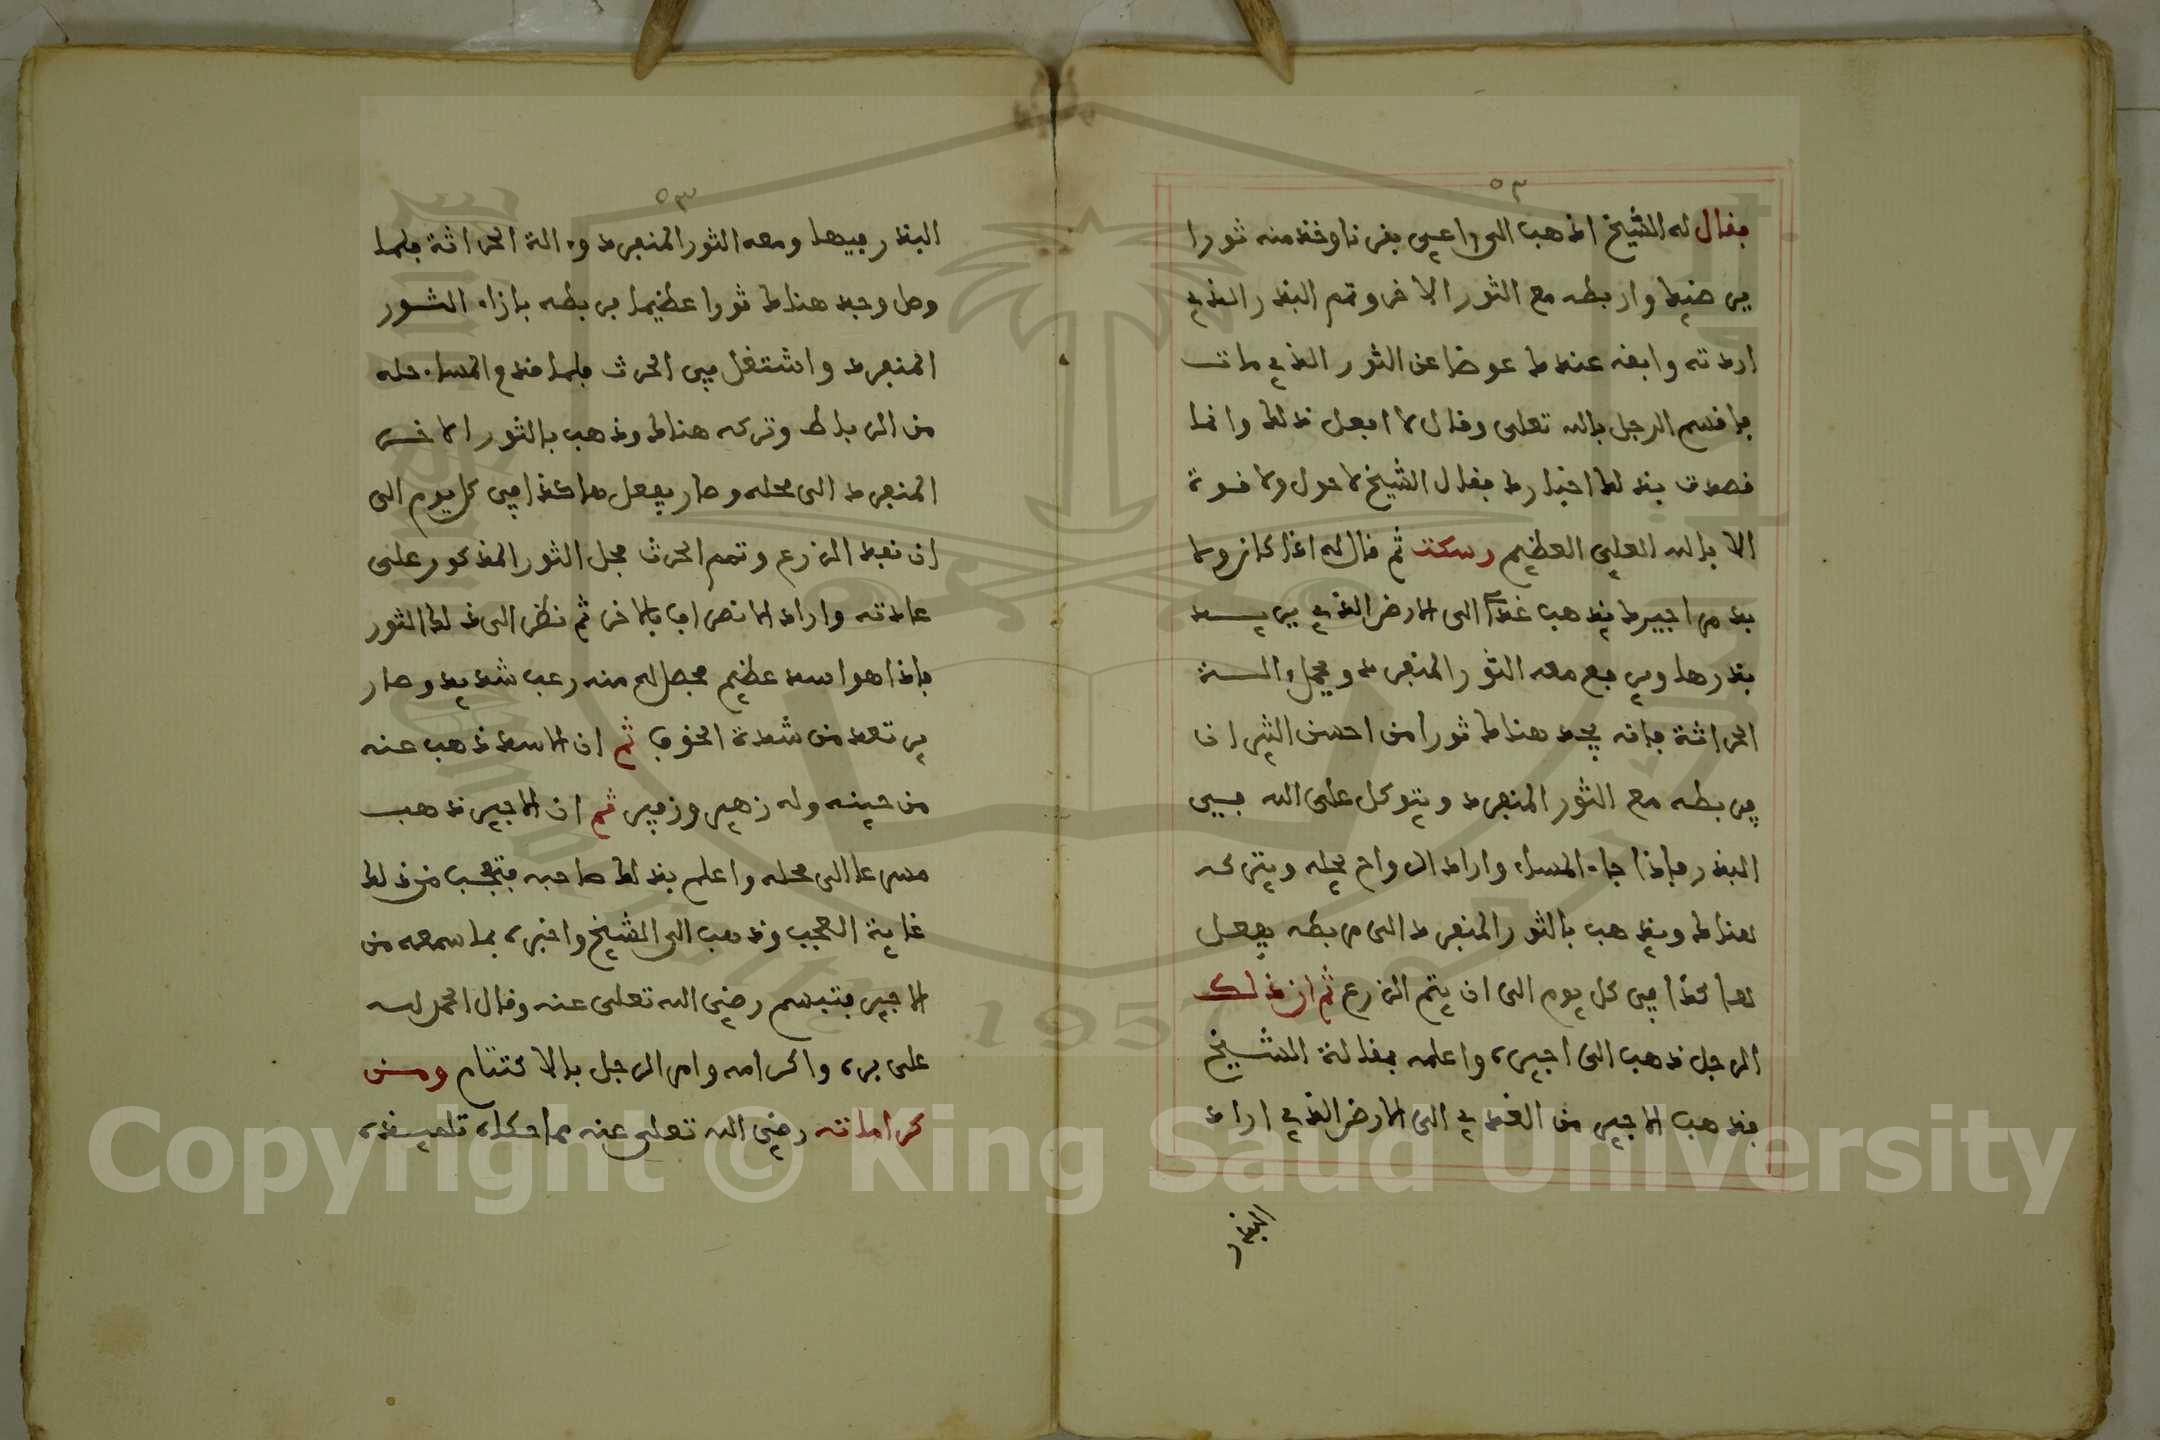 ٥٢
فقال له الشيخ اذهب الى راعي بقرنا وخذ منه ثورا
يرضيك واربطه مع الثور الاخر وتمم البذر الذي
اردته وابقه عندك عوضا عن الثور الذي مات
فاقسم الرجل بالله تعلى وقال لا افعل ذلك وانما
قصدت بذلك اخبارك فقال الشيخ لا حول ولا قوة
الا بالله العلي العظيم وسكت ثم قال له اذا كان ولا
بد مر اجيرك يذهب غدًا الى الارض الذي يريد
بذرها ويرفع معه الثور المنفرد ويحمل الة
الحراثة فانه يجد هناك ثورا من احسن الثيران
يربطه مع الثور المنفرد ويتوكل على الله في
البذر فاذا جاء المساء واراد الرواح يحله ويتركه
هناك ويذهب بالثور المنفرد الى مربطه يفعل
هاكذا في كل يوم الى ان يتم الزرع ثم ان ذلك
الرجل ذهب الى اجيره واعلمه بمقالة الشيخ
فذهب الاجير من الغد ي الى الارض الذي اراد
البذر
٥٣
البذر فيها ومعه الثور المنفرد والة الحراثة فلما
وصل وجد هناك ثورا عظيما فربطه بازاء الثور
المنفرد واشتغل في الحرث فلما قدم المساء حله
من الرباط وتركه هناك وذهب بالثور الاخر
المنفرد الى محله وصار يفعل هاكذا في كل يوم الى
ان نفد الزرع وتمم الحرث فحل الثور المذكور على
عادته واراد الانصراف بالاخر ثم نظر الى ذلك الثور
فاذا هو اسد عظيم فحصل له منه رعب شديد وصار
يرتعد من شدة الخوف ثم ان الاسد ذهب عنه
من حينه وله زهير وزفير ثم ان الاجير ذهب
مسرعا الى محله واعلم بذلك صاحبه فتعجب من ذلك
غاية العجب وذهب الى الشيخ واخبره بما سمعه من
الاجير فتبسم رضي الله تعلى عنه وقال الحمد لله
على بره واكرامه وامر الرجل بالاكتتام ومن
كراماته رضي الله تعلى عنه مما حكاه تلميذه
Copyright © King Saud University
1957